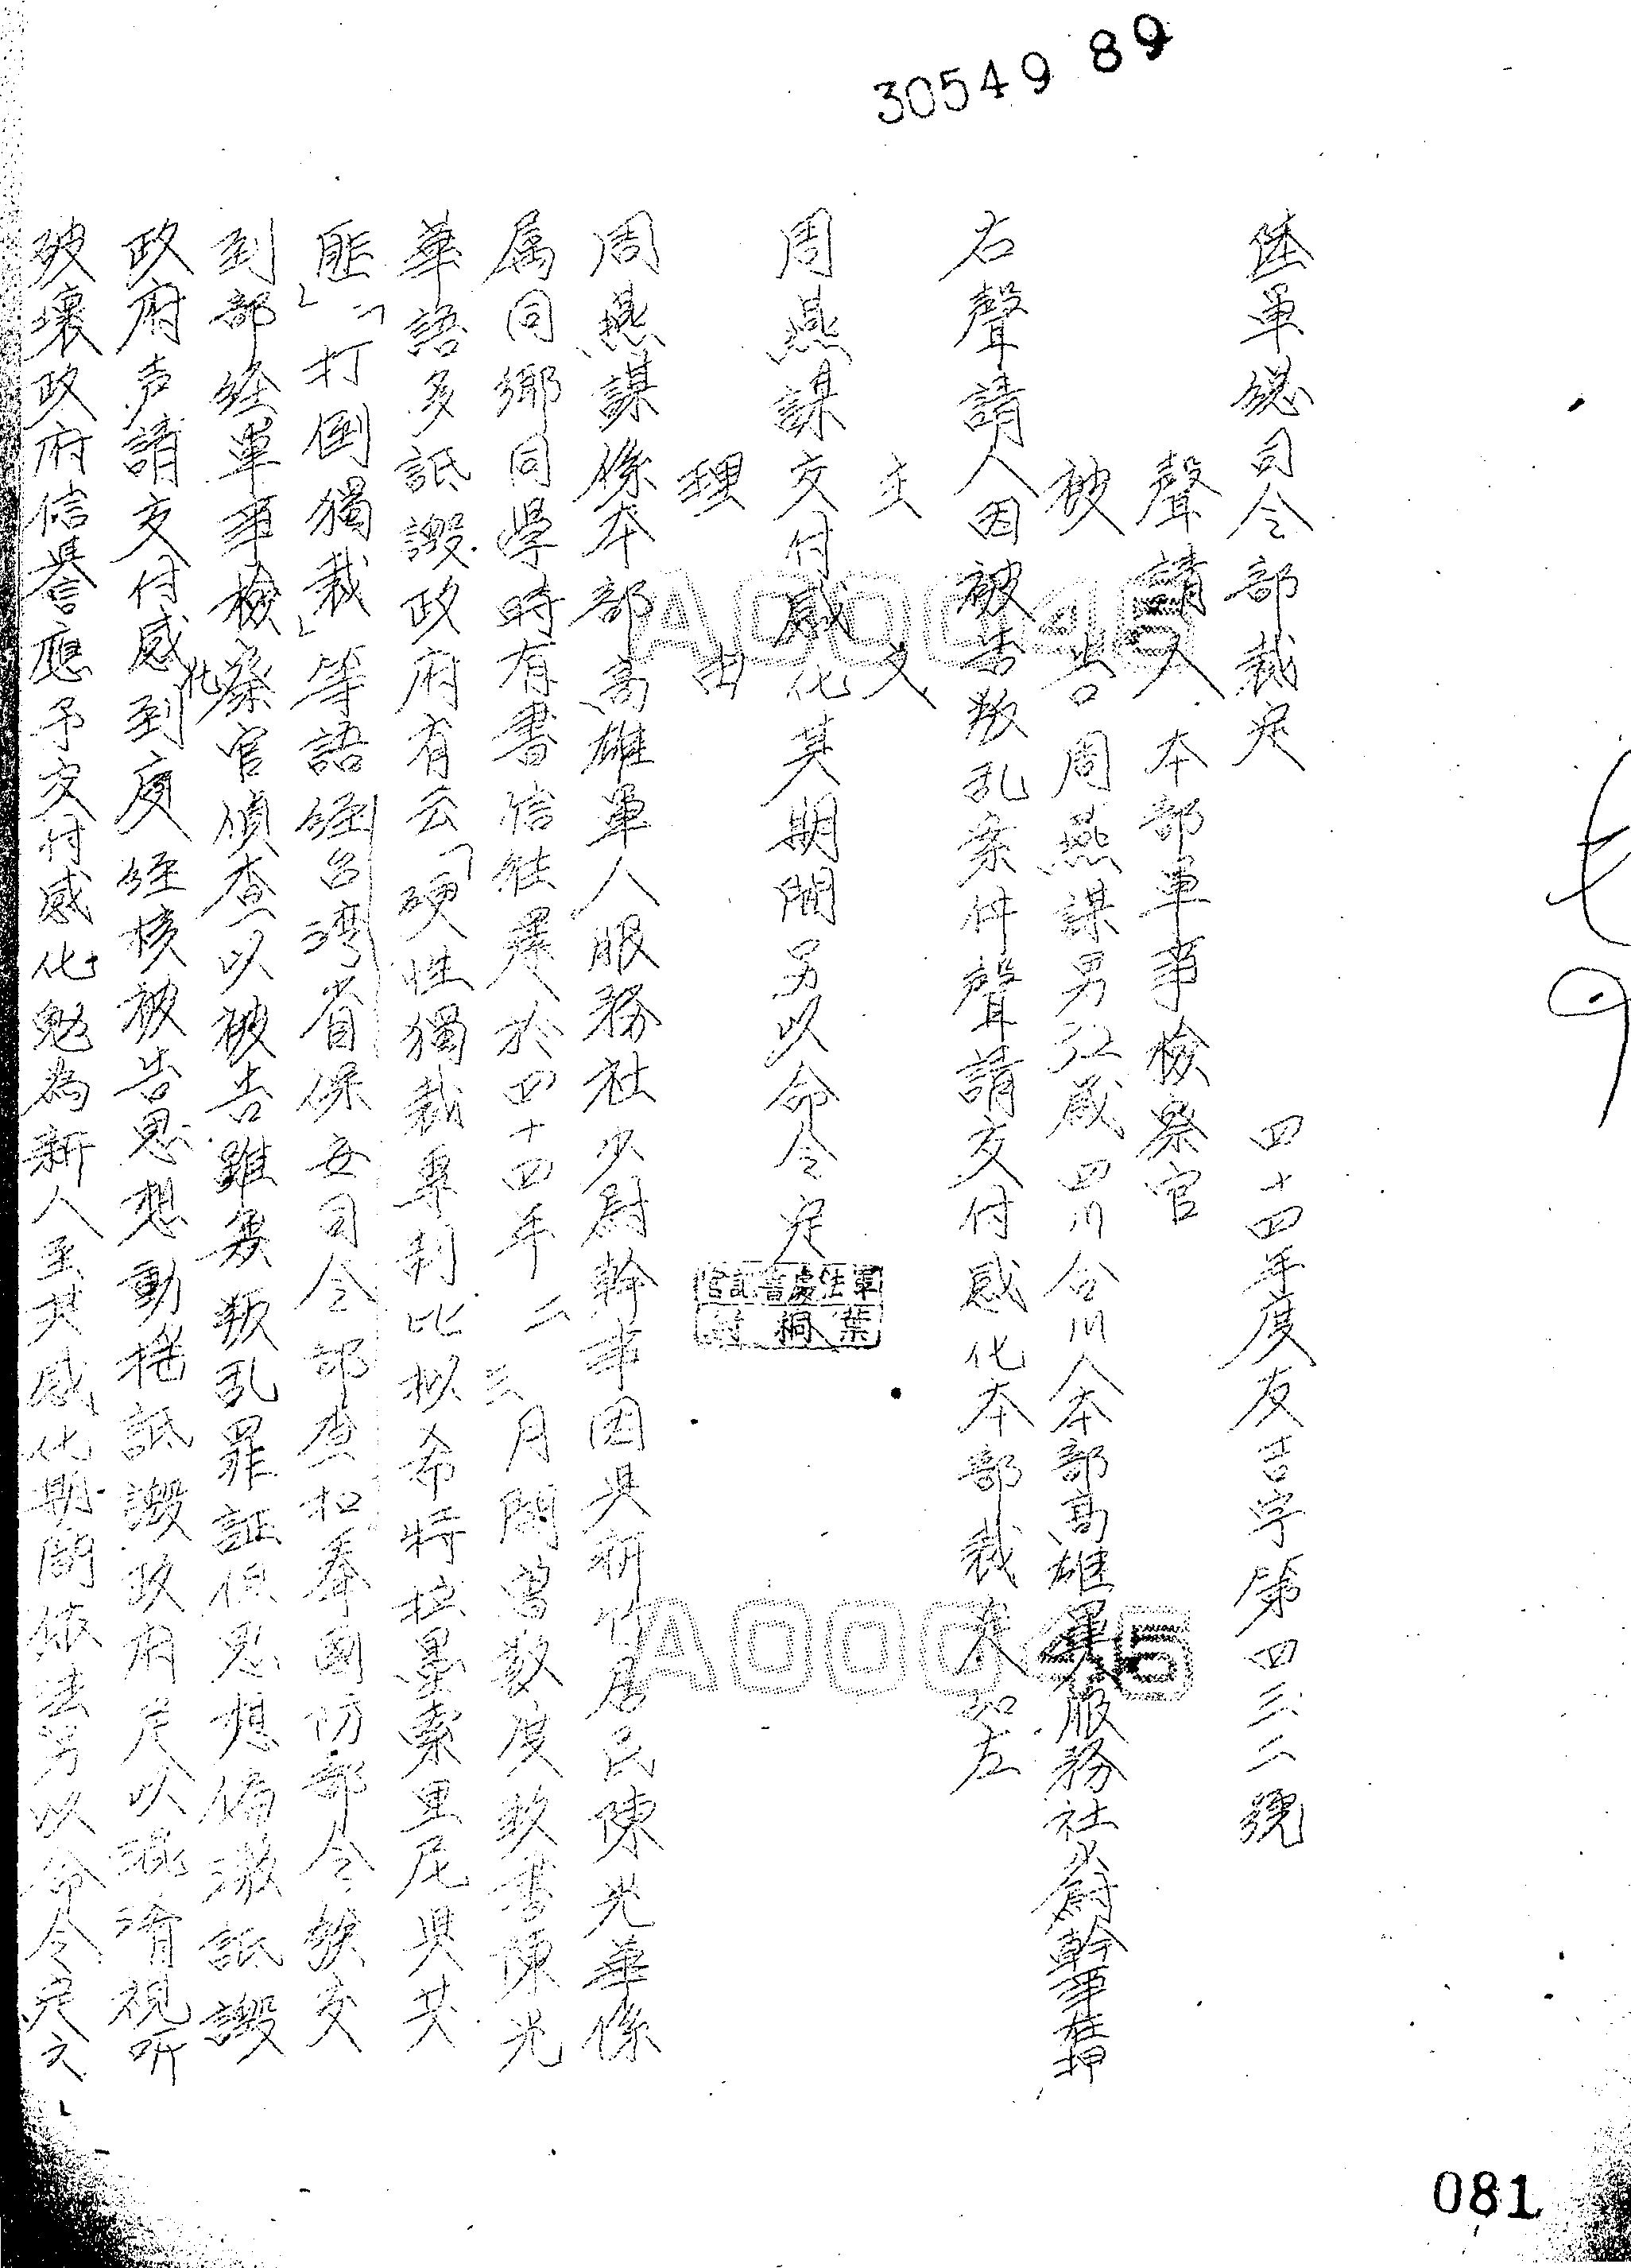 30549 89
陸軍總司令部裁定　四十四年度友吉字第四三二號
聲請人　本部軍事檢察官
被告　周燕謀男　歲四川合川人本部高雄軍人服務社少尉幹事在押
右聲請人因被告叛乱案件聲請交付感化本部裁定如左
主文
周燕謀交付感化其期間另以命令定
理由
周燕謀係本部高雄軍人服務社少尉幹事因與新竹居民陳光華係
属同鄉同學時有書信往還於四十四年二三月間曾数度致書陳光
華語多詆譭政府有云「硬性獨裁專利比拟希特拉墨索里尼與共
匪」「打倒獨裁」等語經台湾省保安司令部查扣奉國防部令發交
到部経軍事檢察官偵查以被告雖無叛乱罪証但思想偏激詆譭
政府声請交付感化到庭経核被告思想動搖詆譭政府足以混淆視听
破壞政府信譽應予交付感化勉為新人至其感化期間依法另以命令定之
軍法處書記官
葉桐
A00045
A00045
081